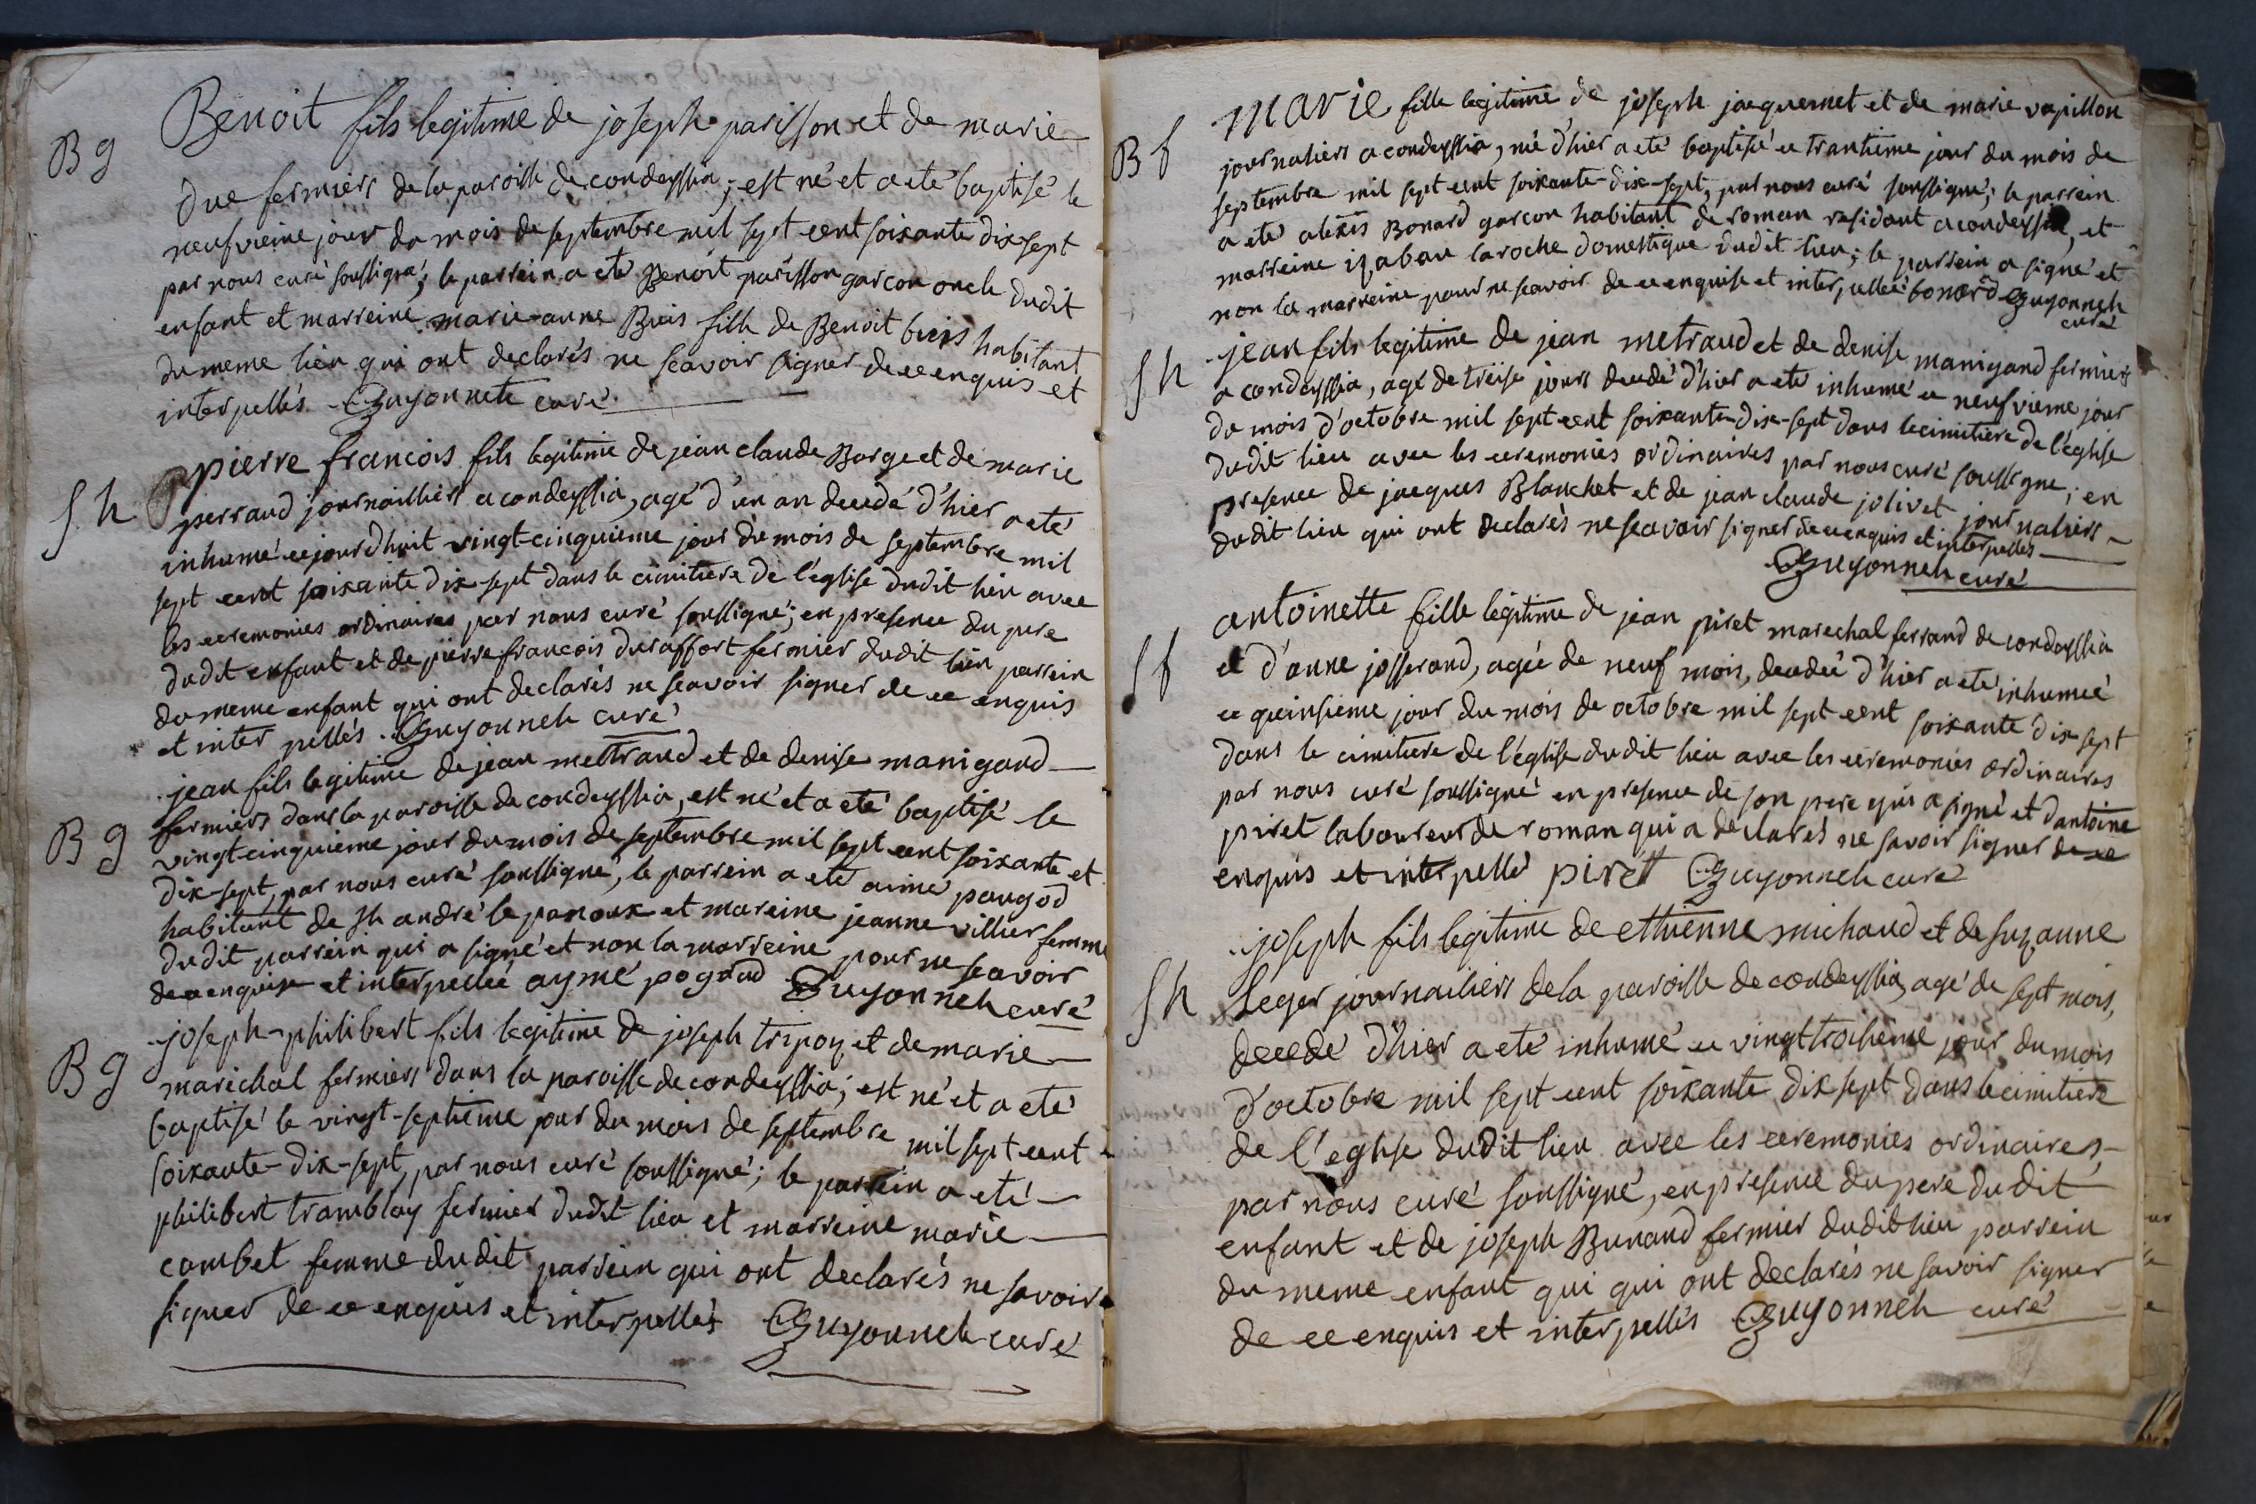 B g
Benoit fils legitime de joseph parisson et de marie
due fermiers de la paroisse de condeyssia; est né et a eté baptisé le
neufvieme jour du mois de septembre mil sept cent soixante dix sept
par nous curé soussigné; le parrein a eté Benoit parisson garcon oncle dudit
enfant et marreine marie-anne Buis fille de Benoit buis habitant
du meme lieu qui ont declarés ne scavoir signer de ce enquis et
interpellés Guyonneh curé
s. h
pierre francois fils legitime de jean claude Borge et de marie
perraud journailliers a condeyssia, agé d'un an decedé d'hier a eté
inhumé ce jourd'huit vingt-cinquieme jour du mois de septembre mil
sept cent soixante dix sept dans le cimitiere de l'église dudit lieu avec
les ceremonies ordinaires par nous curé soussigné; en presence du pere
dudit enfant et de pierre francois duraffort fermier dudit lieu parrein
du meme enfant qui ont declarés ne scavoir signer de ce enquis
et inter pellés. Guyonneh curé
B g
jean fils legitime de jean mettraud et de denise manigand
fermiers dans la paroisse de condeyssia, est né et a eté baptisé le
vingt-cinquieme jour du mois de septembre mil sept cent soixante et
dix-sept, par nous curé soussigné, le parrein a eté aimé paugod
habitant de st andré le panoux et mareine jeanne villier femme
dudit parrein qui a signé et non la marreine pour ne scavoir
de ce enquise et interpellée aymé pogod Guyonneh curé
B g
joseph-philibert fils legitime de joseph tripoz et de marie
marechal fermiers dans la paroisse de condeyssia; est né et a eté
baptisé le vingt-septieme jour du mois de septembre mil sept cent
soixante-dix-sept, par nous curé soussigné; le parrein a eté
philibert tramblay fermier dudit lieu et marreine marie
combet femme dudit parrein qui ont declarés ne savoir
signer de ce enquis et interpellés Guyonneh curé
B f
marie fille legitime de joseph jacquemet et de marie vapillon
journaliers a condeyssia, né d'hier a eté baptisé ce trantieme jour du mois de
septembre mil sept cent soixante-dix-sept, par nous curé soussigné; le parrein
a eté alexis Bonard garcon habitant de roman residant a condeyssia, et
marreine izabau laroche domestique dudit lieu; le parrein a signé et
non la marreine pour ne scavoir de ce enquise et interpellée bonard Guyonneh
curé
s h
jean fils legitime de jean metraud et de denise manigand fermiers
a condeyssia, agé de treise jours decedé d'hier a eté inhumé ce neufvieme jour
du mois d'octobre mil sept cent soixante-dix-sept dans le cimitiere de l'église
dudit lieu avec les ceremonies ordinaires par nous curé soussigné; en
presence de jacques Blanchet et de jean claude jolivet journaliers
dudit lieu qui ont declarés ne scavoir signer de ce enquis et interpellés
Guyonneh curé
s f
antoinette fille legitime de jean piret marechal ferrand de condeyssia
et d'anne josserand, agée de neuf mois, decedée d'hier a eté inhumée
ce quinsieme jour du mois de octobre mil sept cent soixante dix sept
dans le cimitiere de l'église dudit lieu avec les ceremonies ordinaires
par nous curé soussigné en presence de son pere qui a signé et d'antoine
piret laboureur de roman qui a declarés ne savoir signer de ce
enquis et interpellé pirett Guyonneh curé
s h
joseph fils legitime de ettienne michaud et de suzanne
leger journailiers de la paroisse de condeyssia, agé de sept mois,
decedé d'hier a eté inhumé ce vingt troisieme jour du mois
d'octobre mil sept cent soixante dix sept dans le cimitiere
de l'eglise dudit lieu avec les ceremonies ordinaires,
par nous curé soussigné, en presence du pere dudit
enfant et de joseph Bunand fermier dudit lieu parrein
du meme enfant qui qui ont declarés ne savoir signer
de ce enquis et interpellés Guyonneh curé